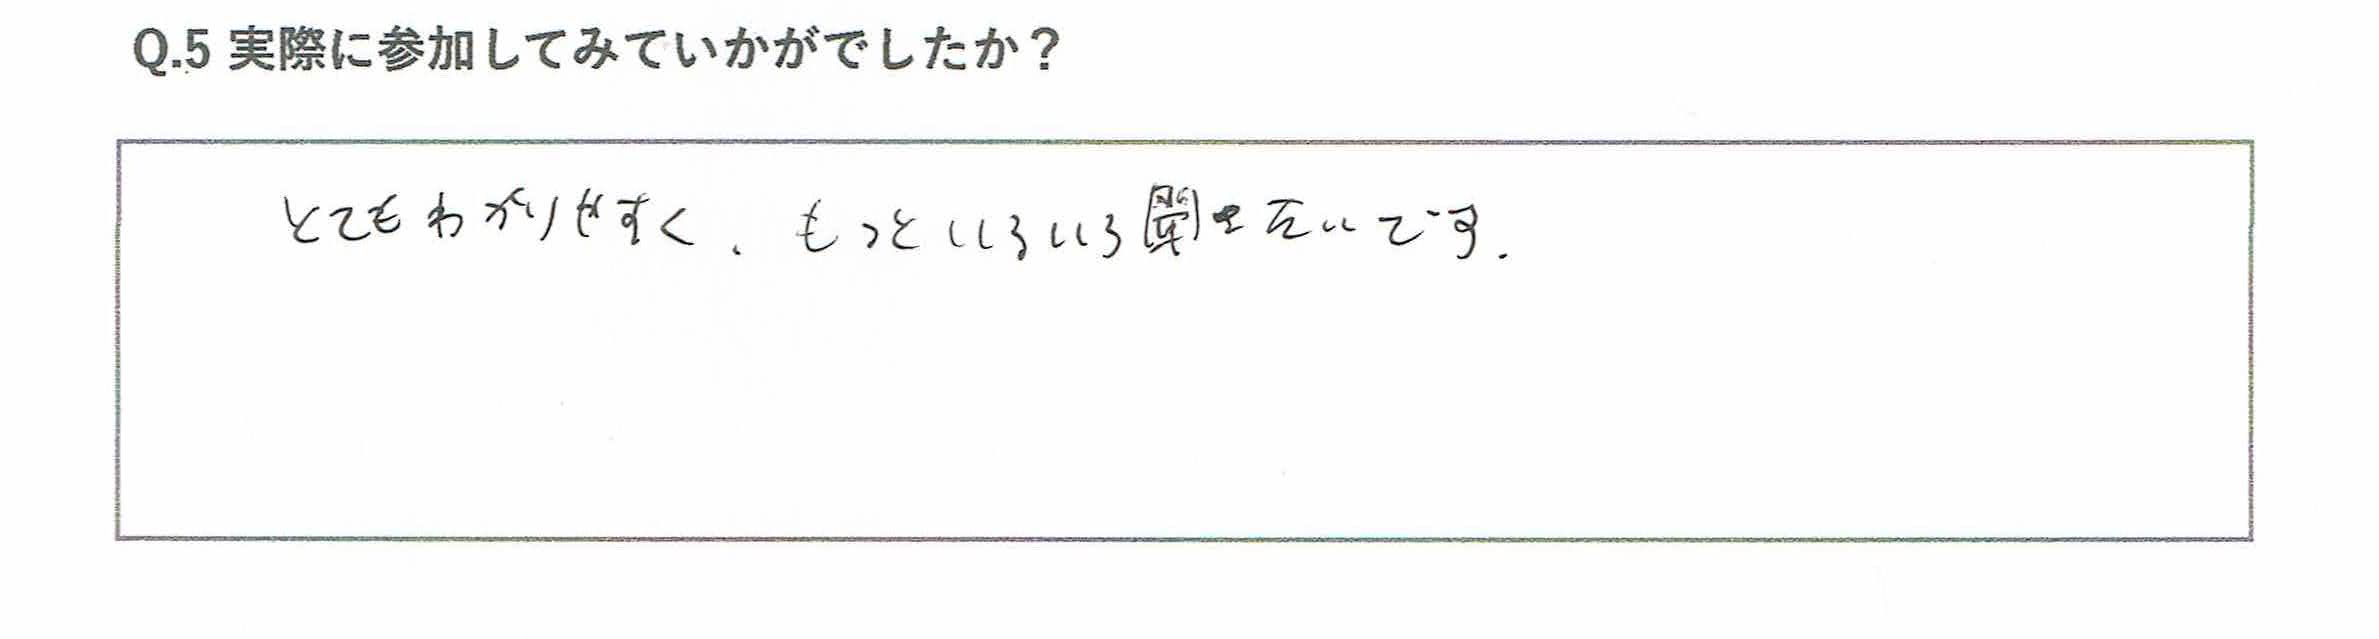 Q.5 実際に参加してみていかがでしたか？
とてもわかりやすく、もっといろいろ聞きたいです.